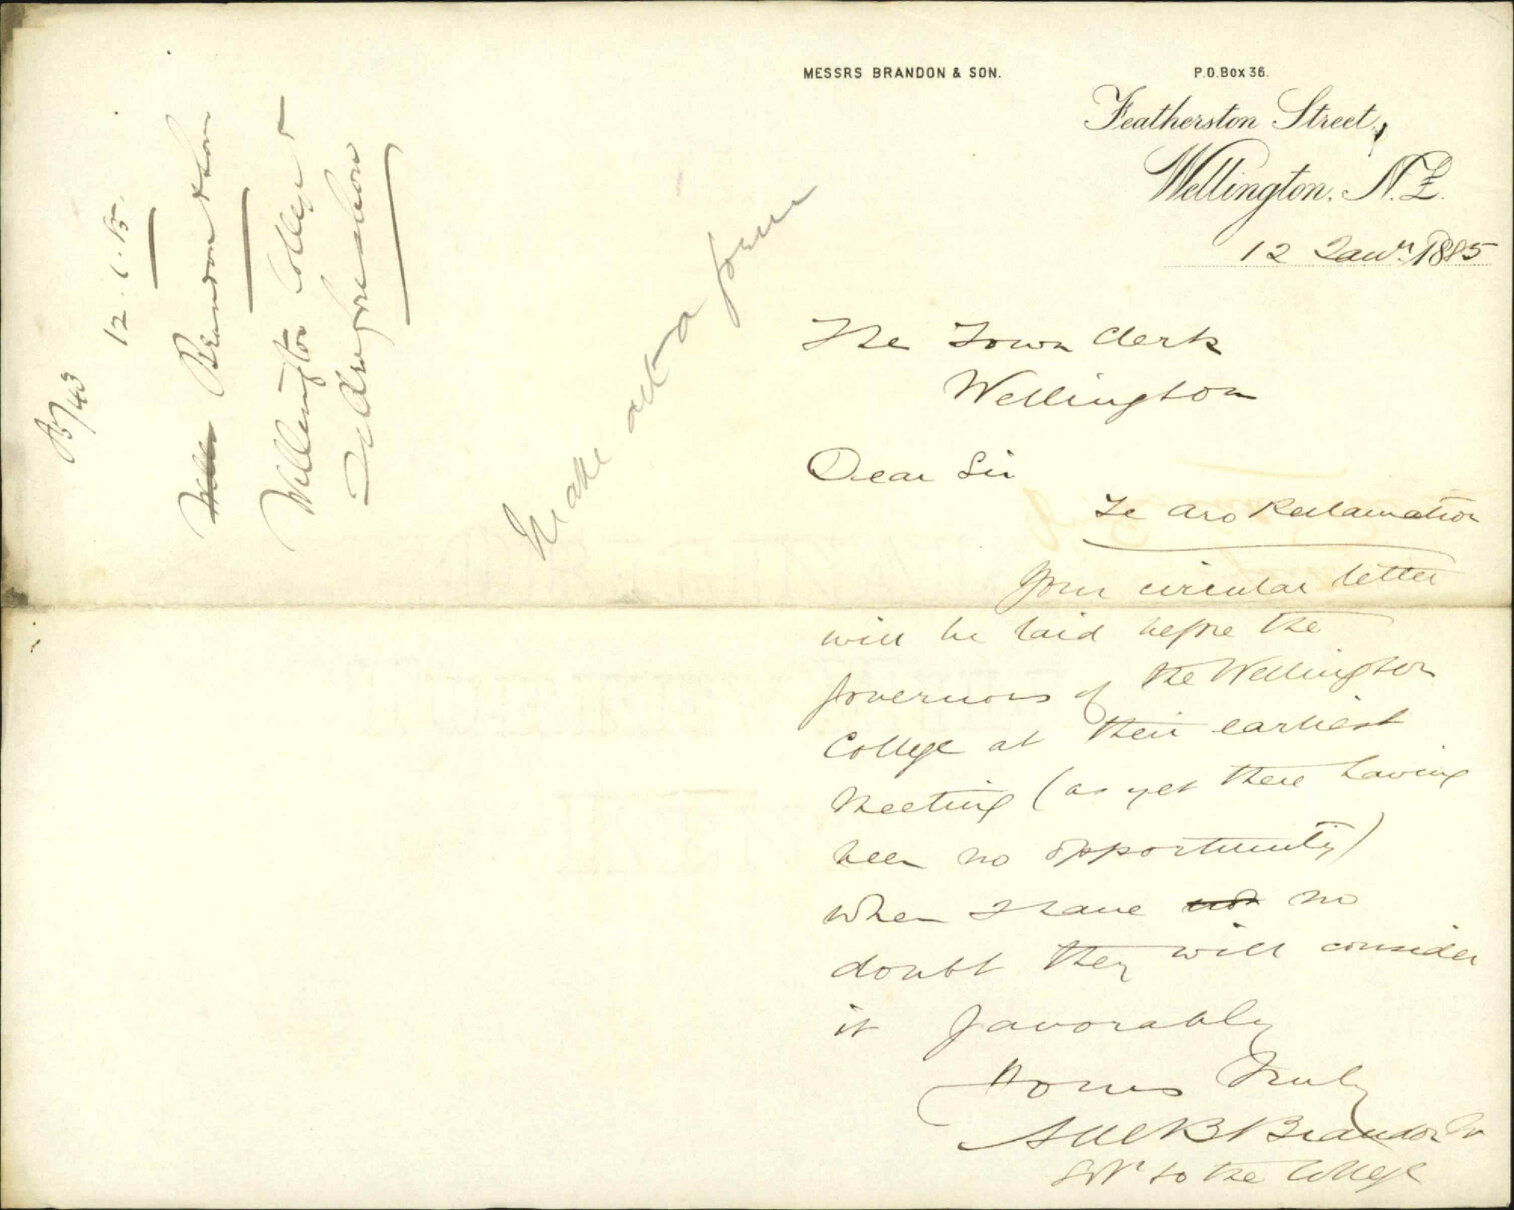 MESSRS BRANDON & SON. P.O. Box 36.
Featherston Street,
Wellington, N.Z.
12 Jany. 1885
The Town Clerk
Wellington
Dear Sir
Te Aro Reclamation
Your circular letter
will be laid before the
Governors of the Wellington
College at their earliest
Meeting (as yet there having
been no opportunity)
when I have not no
doubt they will consider
it favorably
Yours Truly
Brandon Jr
Solr to the College
B/43
12.1.85.
Brandon & Son
Wellington College
Make out a